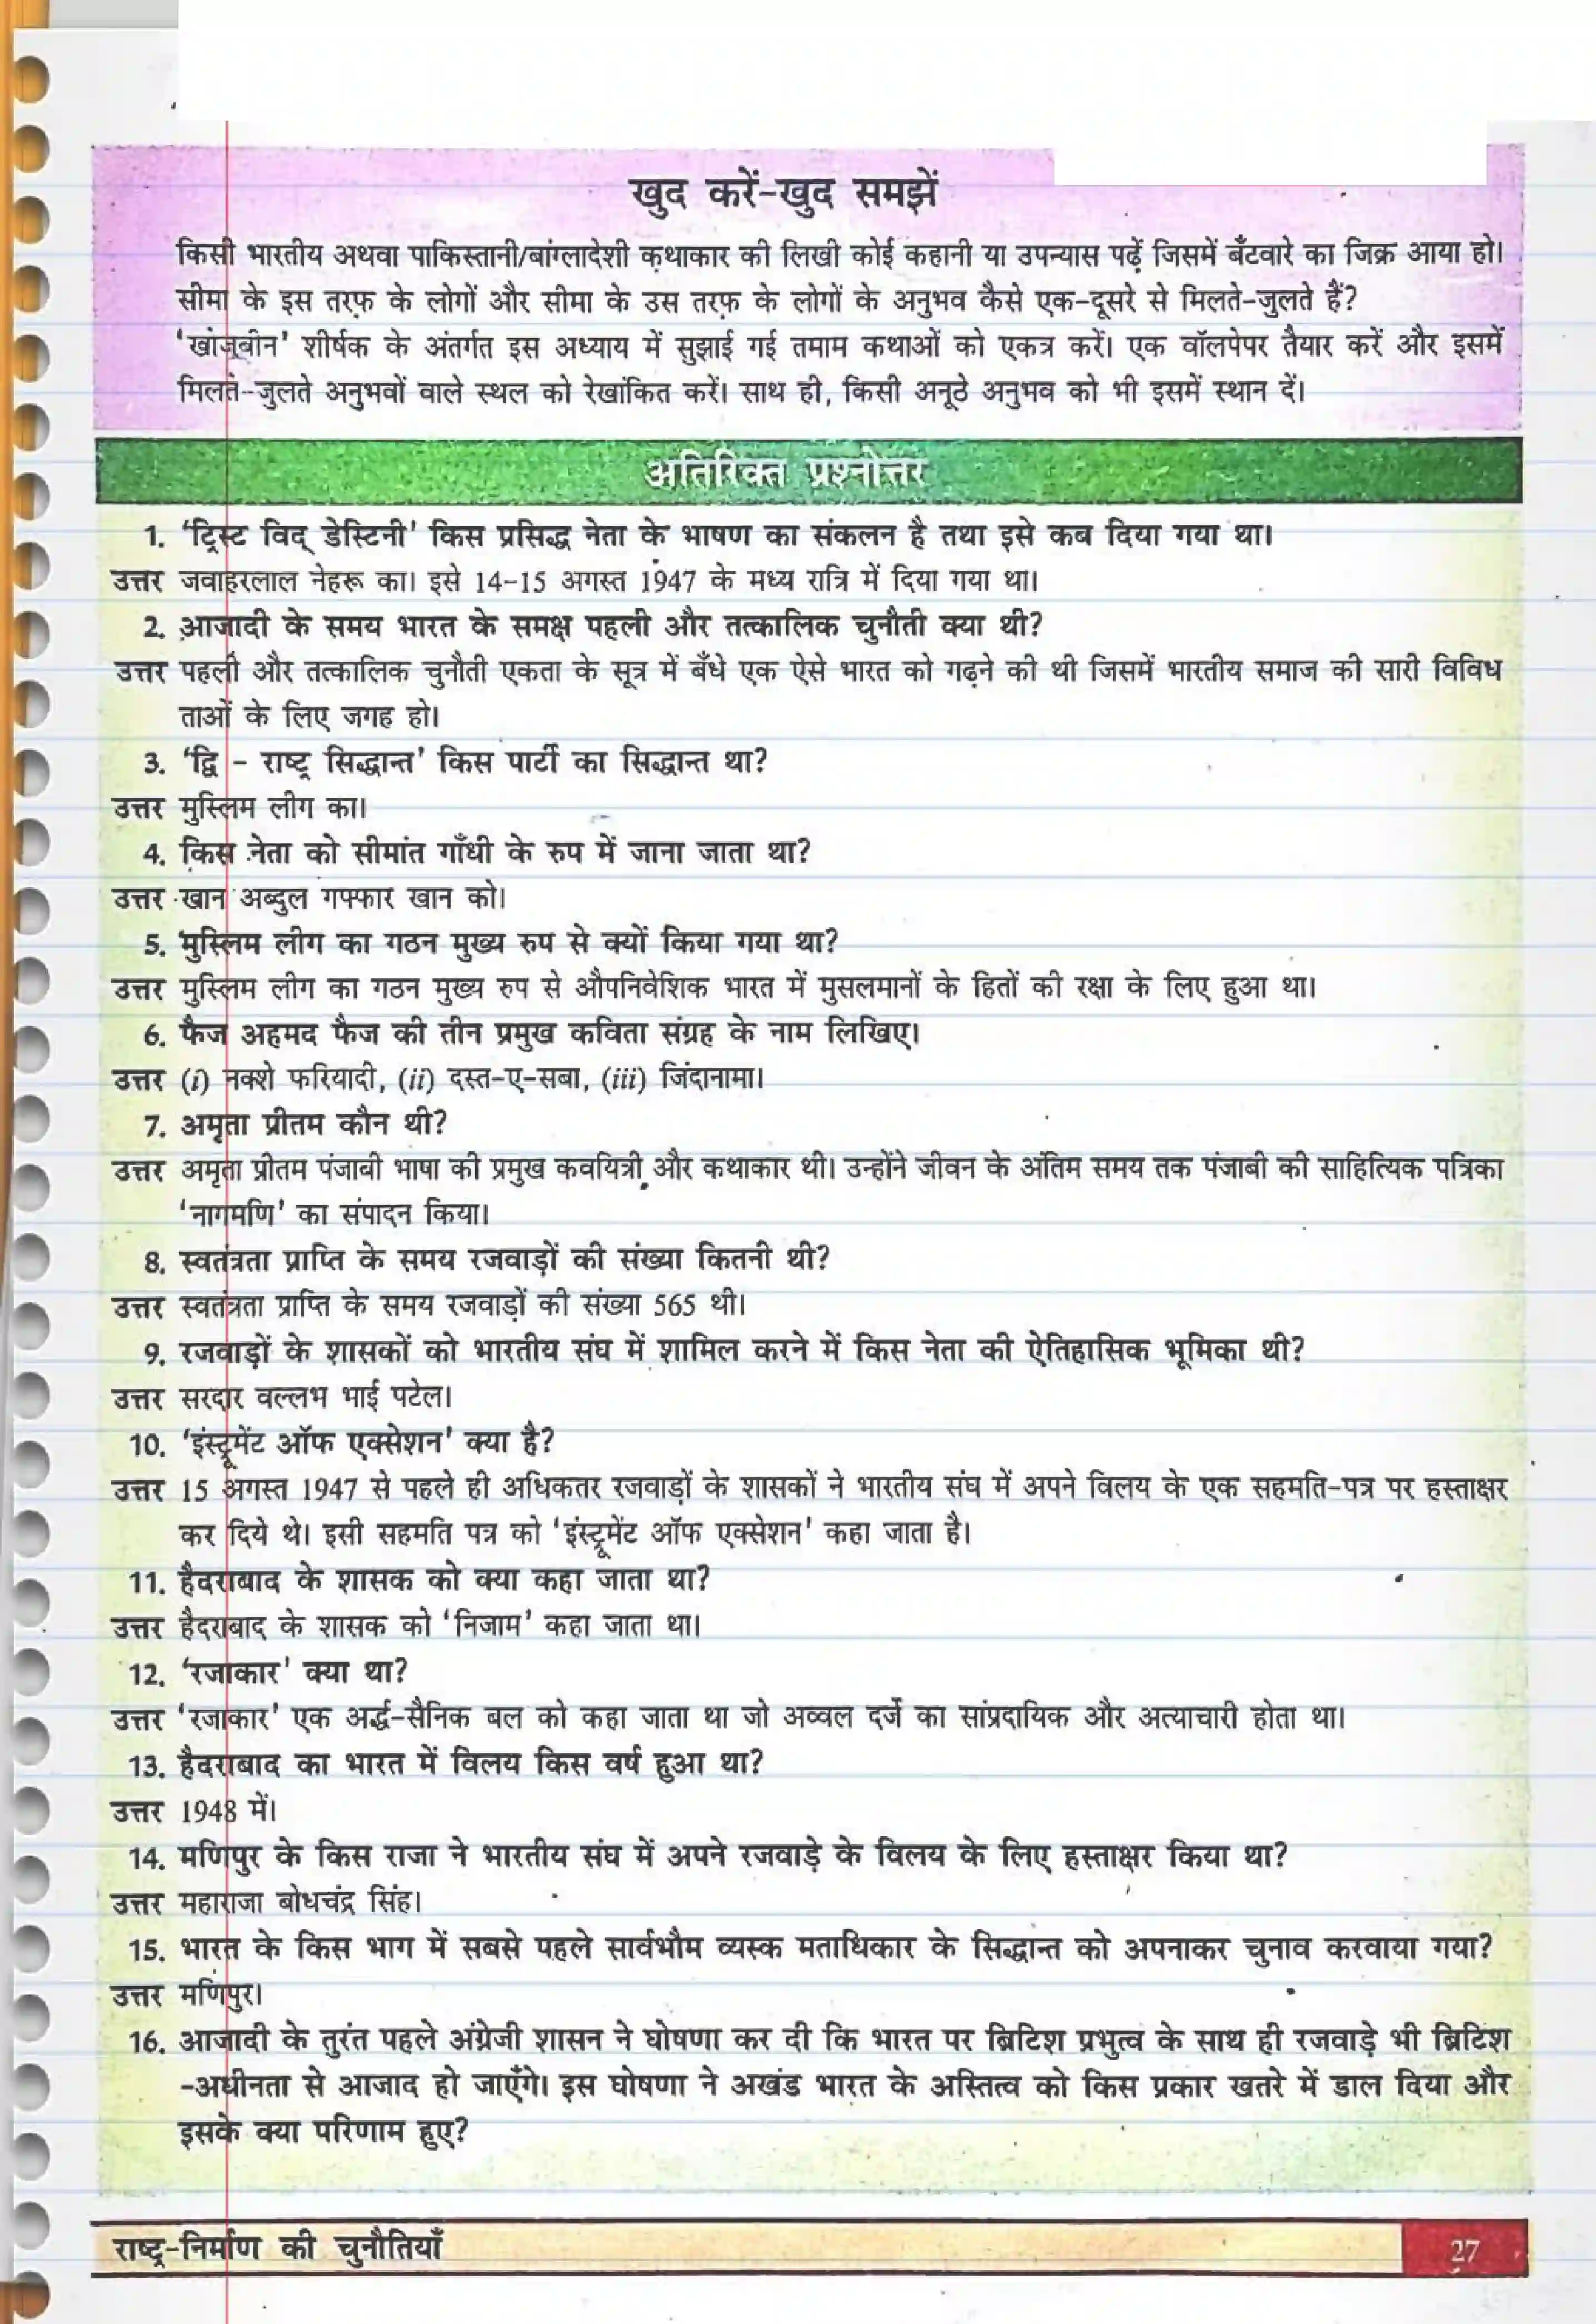 खुद करें-खुद समझें
किसी भारतीय अथवा पाकिस्तानी/बांग्लादेशी कथाकार की लिखी कोई कहानी या उपन्यास पढ़ें जिसमें बँटवारे का जिक्र आया हो।
सीमा के इस तरफ़ के लोगों और सीमा के उस तरफ़ के लोगों के अनुभव कैसे एक-दूसरे से मिलते-जुलते हैं?
'खोजबीन' शीर्षक के अंतर्गत इस अध्याय में सुझाई गई तमाम कथाओं को एकत्र करें। एक वॉलपेपर तैयार करें और इसमें
मिलते-जुलते अनुभवों वाले स्थल को रेखांकित करें। साथ ही, किसी अनूठे अनुभव को भी इसमें स्थान दें।
अतिरिक्त प्रश्नोत्तर
1. 'ट्रिस्ट विद् डेस्टिनी' किस प्रसिद्ध नेता के भाषण का संकलन है तथा इसे कब दिया गया था।
उत्तर जवाहरलाल नेहरू का। इसे 14-15 अगस्त 1947 के मध्य रात्रि में दिया गया था।
2. आजादी के समय भारत के समक्ष पहली और तत्कालिक चुनौती क्या थी?
उत्तर पहली और तत्कालिक चुनौती एकता के सूत्र में बँधे एक ऐसे भारत को गढ़ने की थी जिसमें भारतीय समाज की सारी विविध
ताओं के लिए जगह हो।
3. 'द्वि - राष्ट्र सिद्धान्त' किस पार्टी का सिद्धान्त था?
उत्तर मुस्लिम लीग का।
4. किस नेता को सीमांत गाँधी के रुप में जाना जाता था?
उत्तर खान अब्दुल गफ्फार खान को।
5. मुस्लिम लीग का गठन मुख्य रुप से क्यों किया गया था?
उत्तर मुस्लिम लीग का गठन मुख्य रुप से औपनिवेशिक भारत में मुसलमानों के हितों की रक्षा के लिए हुआ था।
6. फैज अहमद फैज की तीन प्रमुख कविता संग्रह के नाम लिखिए।
उत्तर (i) नक्शे फरियादी, (ii) दस्त-ए-सबा, (iii) जिंदानामा।
7. अमृता प्रीतम कौन थी?
उत्तर अमृता प्रीतम पंजाबी भाषा की प्रमुख कवयित्री और कथाकार थी। उन्होंने जीवन के अंतिम समय तक पंजाबी की साहित्यिक पत्रिका
'नागमणि' का संपादन किया।
8. स्वतंत्रता प्राप्ति के समय रजवाड़ों की संख्या कितनी थी?
उत्तर स्वतंत्रता प्राप्ति के समय रजवाड़ों की संख्या 565 थी।
9. रजवाड़ों के शासकों को भारतीय संघ में शामिल करने में किस नेता की ऐतिहासिक भूमिका थी?
उत्तर सरदार वल्लभ भाई पटेल।
10. 'इंस्ट्रूमेंट ऑफ एक्सेशन' क्या है?
उत्तर 15 अगस्त 1947 से पहले ही अधिकतर रजवाड़ों के शासकों ने भारतीय संघ में अपने विलय के एक सहमति-पत्र पर हस्ताक्षर
कर दिये थे। इसी सहमति पत्र को 'इंस्ट्रूमेंट ऑफ एक्सेशन' कहा जाता है।
11. हैदराबाद के शासक को क्या कहा जाता था?
उत्तर हैदराबाद के शासक को 'निजाम' कहा जाता था।
12. 'रजाकार' क्या था?
उत्तर 'रजाकार' एक अर्द्ध-सैनिक बल को कहा जाता था जो अव्वल दर्जे का सांप्रदायिक और अत्याचारी होता था।
13. हैदराबाद का भारत में विलय किस वर्ष हुआ था?
उत्तर 1948 में।
14. मणिपुर के किस राजा ने भारतीय संघ में अपने रजवाड़े के विलय के लिए हस्ताक्षर किया था?
उत्तर महाराजा बोधचंद्र सिंह।
15. भारत के किस भाग में सबसे पहले सार्वभौम व्यस्क मताधिकार के सिद्धान्त को अपनाकर चुनाव करवाया गया?
उत्तर मणिपुर।
16. आजादी के तुरंत पहले अंग्रेजी शासन ने घोषणा कर दी कि भारत पर ब्रिटिश प्रभुत्व के साथ ही रजवाड़े भी ब्रिटिश
-अधीनता से आजाद हो जाएँगे। इस घोषणा ने अखंड भारत के अस्तित्व को किस प्रकार खतरे में डाल दिया और
इसके क्या परिणाम हुए?
राष्ट्र-निर्माण की चुनौतियाँ
27